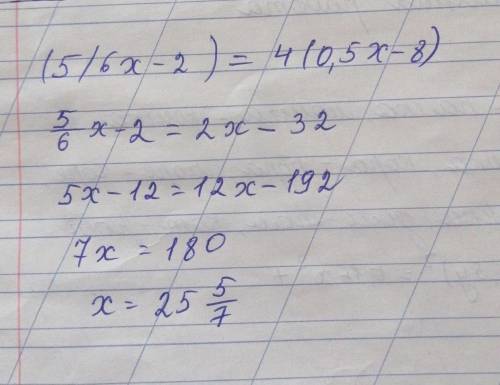 (5/6x-2) = 4(0,5x-8)
5/6 x-2 = 2x-32
5x-12 = 12x-192
7x = 180
x = 25 5/7